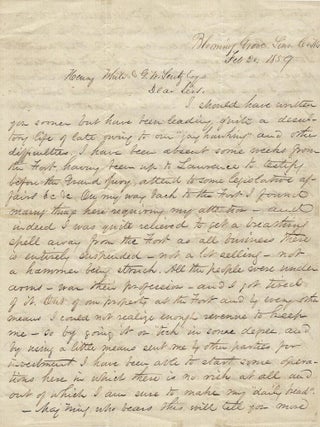 Blooming Grove, Linn Co. K.T.
Feb 20, 1859
Henry White & G. W. Scott Esqs
Dear Sirs.
I should have written
you sooner but have been leading quite a desul-
tory life of late owing to our "jay hawkers" and other
difficulties. I have been absent some weeks from
the Fort, having been up to Lawrence to testify
before the Grand jury, attend to some Legislative af-
fairs &c &c On my way back to the Fort I found
many things here requiring my attention - and
indeed I was quite relieved to get a breathing
spell away from the Fort as all business there
is entirely suspended - not a lot selling - not
a hammer being struck. All the people were under
arms - war their profession - and I got tired
of it. Out of our property at the Fort and by every other
means I could not realize enough revenue to keep
me - so by going it on "tick" in some degree and
by using a little means sent me by other parties for
investment I have been able to start some opera-
tions here in which there is no risk at all and
out of which I am sure to make my "daily bread".
- who bears this will tell you more